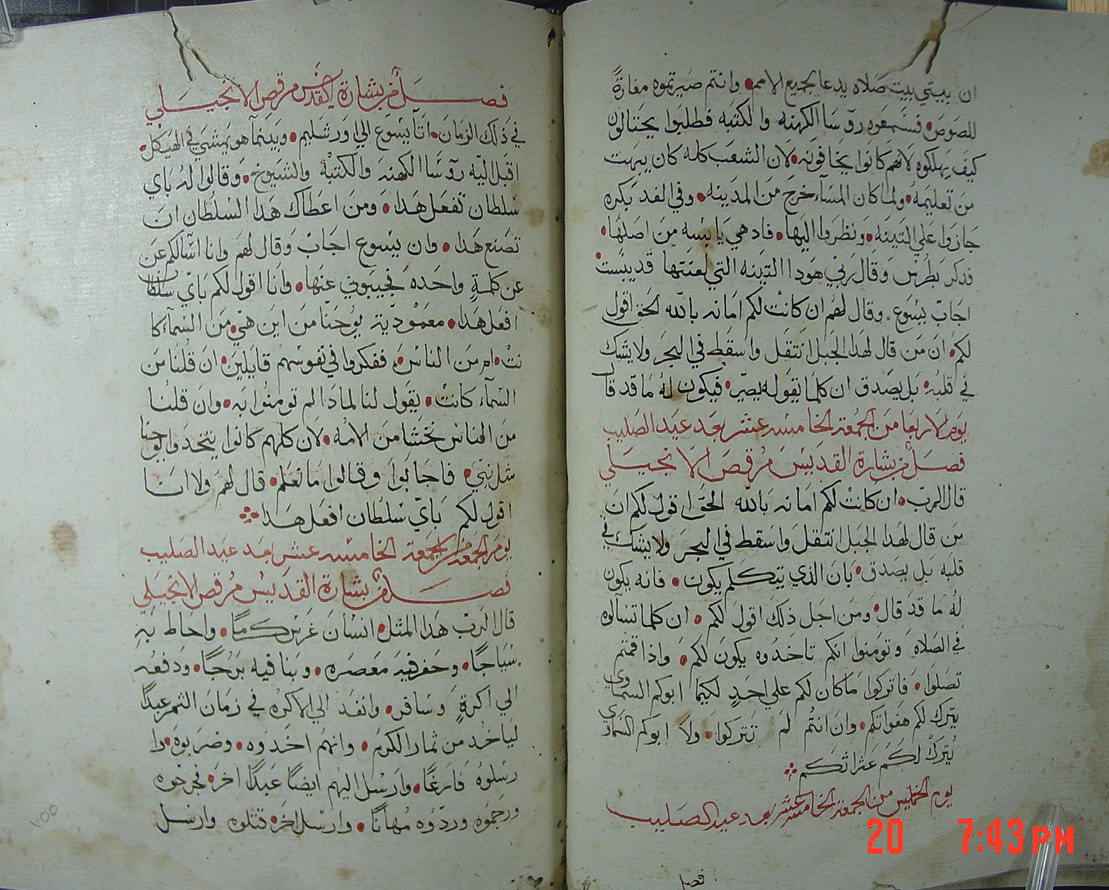 ان بيتي بيت صلاه يدعا لجميع الامم • وانتم صيرتموه مغارة
للصوص • فسمعوه روسا الكهنه والكتبه فطلبوا يحتالون
كيف يهلكوه لانهم كانوا يخافونه • لان الشعب كله كان يبهت
من تعليمه • ولما كان المسآء خرج من المدينه • وفي الغد بكره
جازوا علي التينه • ونظروا اليها • فاذ هي يابسه من اصلها •
فذكر بطرس وقال ربي هوذا التينه التي لعنتها قد يبست
اجاب يسوع • وقال لهم ان كانت لكم امانه بالله الحق اقول
لكم • ان من قال لهذا الجبل انتقل واسقط في البحر ولا يشك
في قلبه • بل يصدق ان كلما يقوله يصير • فيكون له ما قد قا
يوم الاربعا من الجمعه الخامسه عشر بعد عيد الصليب
فصل من بشارة القديس مرقص الانجيلي
قال الرب • ان كانت لكم امانه بالله الحق اقول لكم ان
من قال لهذا الجبل انتقل واسقط في البحر ولا يشك في
قلبه بل يصدق • بان الذي يتكلم يكون • فانه يكون
له ما قد قال • ومن اجل ذلك اقول لكم • ان كلما تسآلوه
في الصلاه وتومنوا انكم تاخذوه يكون لكم • واذا قمتم
تصلوا • فاتركوا ما كان لكم علي احدٍ لكيما ابوكم السماوي
يترك لكم هفواتكم • وان انتم لم تتركوا • ولا ابوكم السماوي
يترك لكم عثراتكم
يوم الخميس من الجمعه الخامسه عشر بعد عيد الصليب
فصل
فصل من بشارة القديس مرقص الانجيلي
في ذلك الزمان • اتا يسوع الي اورشليم • وبينما هو يمشي في الهيكل •
اقبل اليه روسا الكهنه والكتبه والشيوخ • وقالوا له باي
سلطان تفعل هذا • ومن اعطاك هذا السلطان ان
تصنع هذا • وان يسوع اجاب وقال لهم وانا اسالكم عن
عن كلمةٍ واحده فجيبوني عنها • وانا اقول لكم باي سلطا
افعل هذا • معمودية يوحنا من اين هي • من السمآء كا
نت • ام من الناس • ففكروا في نفوسهم قايلين • ان قلنا من
السمآء كانت • يقول لنا لماذا لم تومنوا به • وان قلنا
من الناس نخشا من الامه • لان كلهم كانوا يتخذوا يوحنا
مثل نبي • فاجابوا وقالوا ما نعلم • قال لهم ولا انا
اقول لكم باي سلطان افعل هذا
يوم الجمعه من الجمعة الخامسه عشر بعد عيد الصليب
فصل من بشارة القديس مرقص الانجيلي
قال الرب هذا المثل • انسان غرس كرمًا • واحاط به
سياجًا • وحفر فيه معصره • وبنا فيه برجًا • ودفعه
الي اكرةٍ وسافر • وانفذ الي الاكره في زمان الثمر عبدًا
لياخذ من ثمار الكرم • وانهم اخذوه • وضربوه • وا
رسلوه فارغًا • وارسل اليهم ايضًا عبدًا اخر • فجرحوه
ورجموه وردوه مهانًا • وارسل اخر • قتلوه وارسل
100
20 7:43 PM